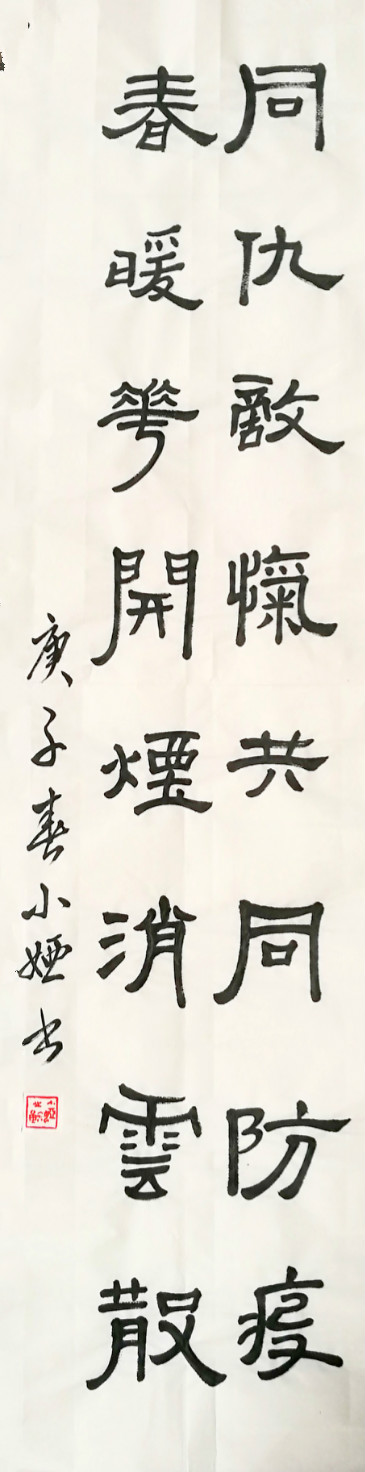 同仇敌愾共同防疫
春暖華開煙消雲散
庚子春小婭书